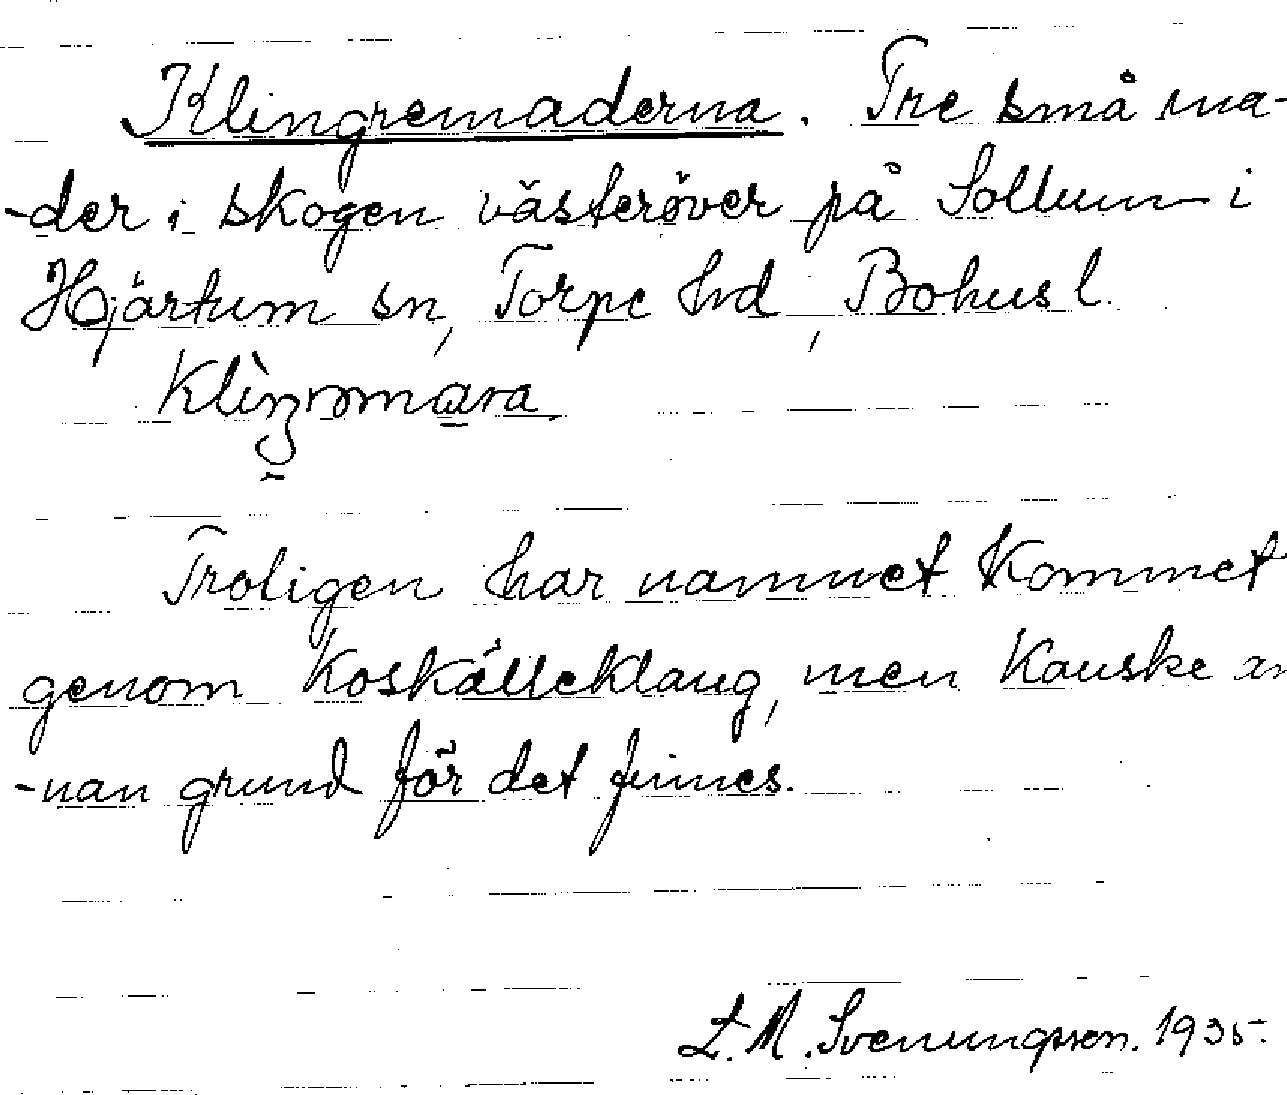 Klingremaderna. Tre små ma-
-der i skogen västeröver på Sollum i
Hjärtum sn, Torpe hd, Bohusl.
Troligen har namnet kommet
genom koskälleklang, men kanske an
-nan grund för det finnes.
L. M. Svenungsson. 1935.